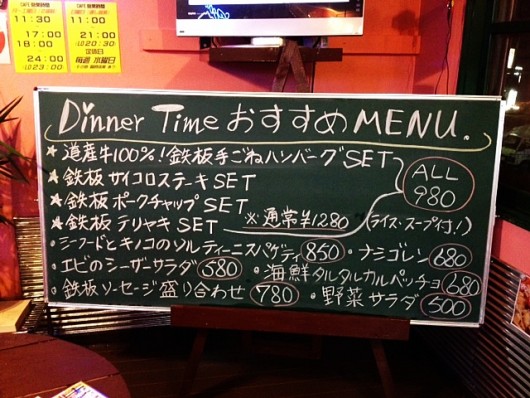 11:30
17:00
18:00
24:00
11:00
21:00
定休日
毎週 水曜日
Dinner Time おすすめ MENU.
★ 道産牛100%!鉄板手ごねハンバーグSET
★ 鉄板 サイコロステーキ SET
★ 鉄板 ポークチャップ SET
★ 鉄板 テリヤキ SET
ALL 980
※通常¥1280 (ライス・スープ付!)
・シーフードとキノコのソルティーニスパゲティ 850 ・ナシゴレン 680
・エビのシーザーサラダ 580 ・海鮮タルタルカルパッチョ 680
・鉄板ソーセージ盛り合わせ 780 ・野菜サラダ 500